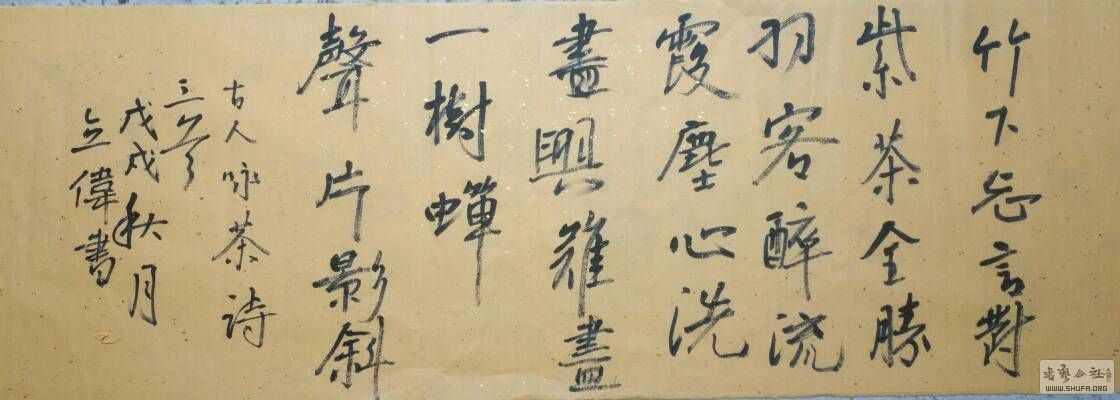 竹下忘言對
紫茶全勝
羽客醉流
霞塵心洗
盡興難盡
一樹蟬
聲片影斜
古人咏茶詩
三首
戊戌秋月
立偉書
WWW.SHUFA.ORG